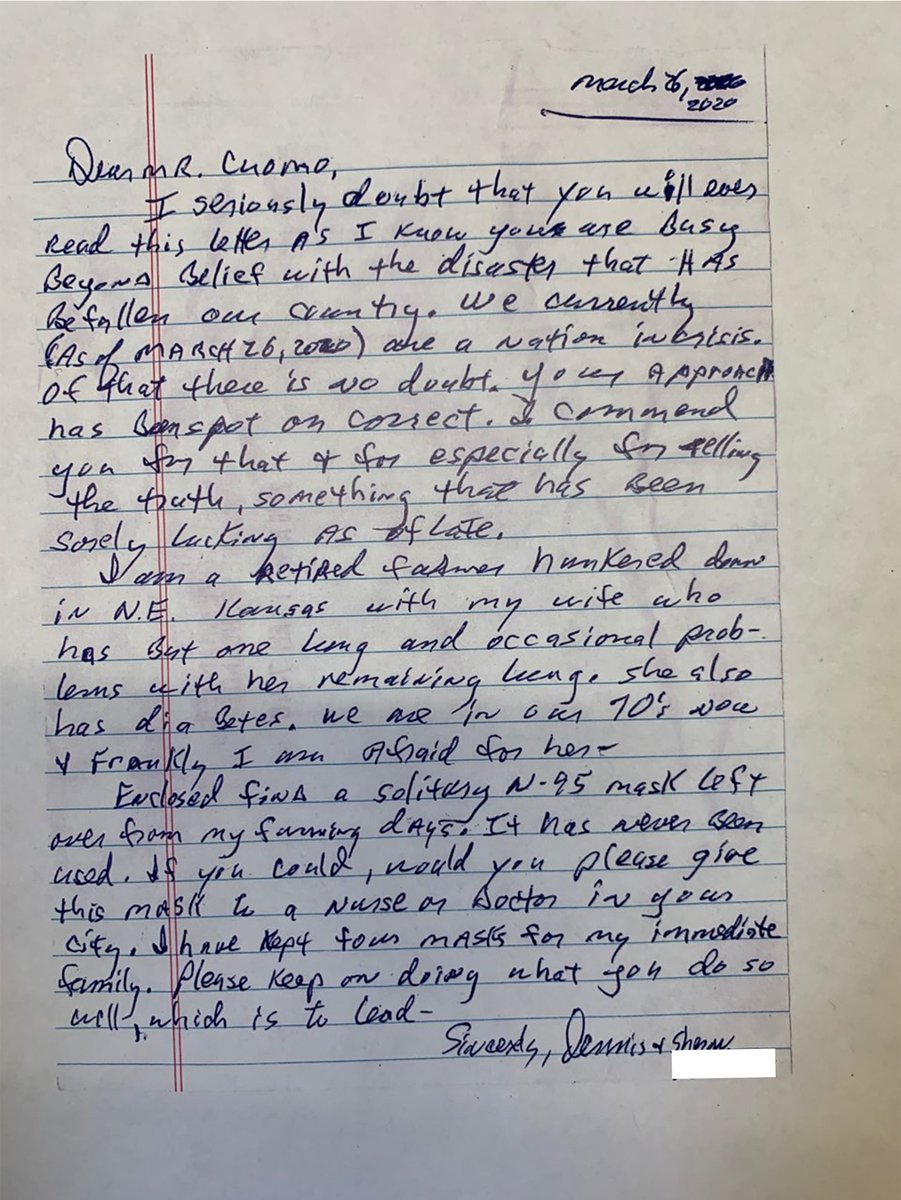 March 26,
2020
Dear MR. Cuomo,
I seriously doubt that you will ever
Read this letter As I Know you are Busy
Beyond Belief with the disaster that HAS
Befallen our country. We currently
(As of MARCH 26, 2020) are a Nation in crisis.
Of that there is no doubt. your Approach
has Been spot on correct. I commend
you for that & for especially for telling
the truth, something that has Been
sorely lacking As of late.
I am a retired farmer hunkered down
in N.E. Kansas with my wife who
has But one lung and occasional prob-
lems with her remaining lung. She also
has diaBetes. We are in our 70's now
& Frankly I am Afraid for her-
Enclosed find a solitary N-95 mask left
over from my farming days. It has never Been
used. If you could, would you please give
this mask to a Nurse or Doctor in your
City. I have kept four masks for my immediate
family. Please Keep on doing what you do so
well, which is to lead-
Sincerely, Dennis &